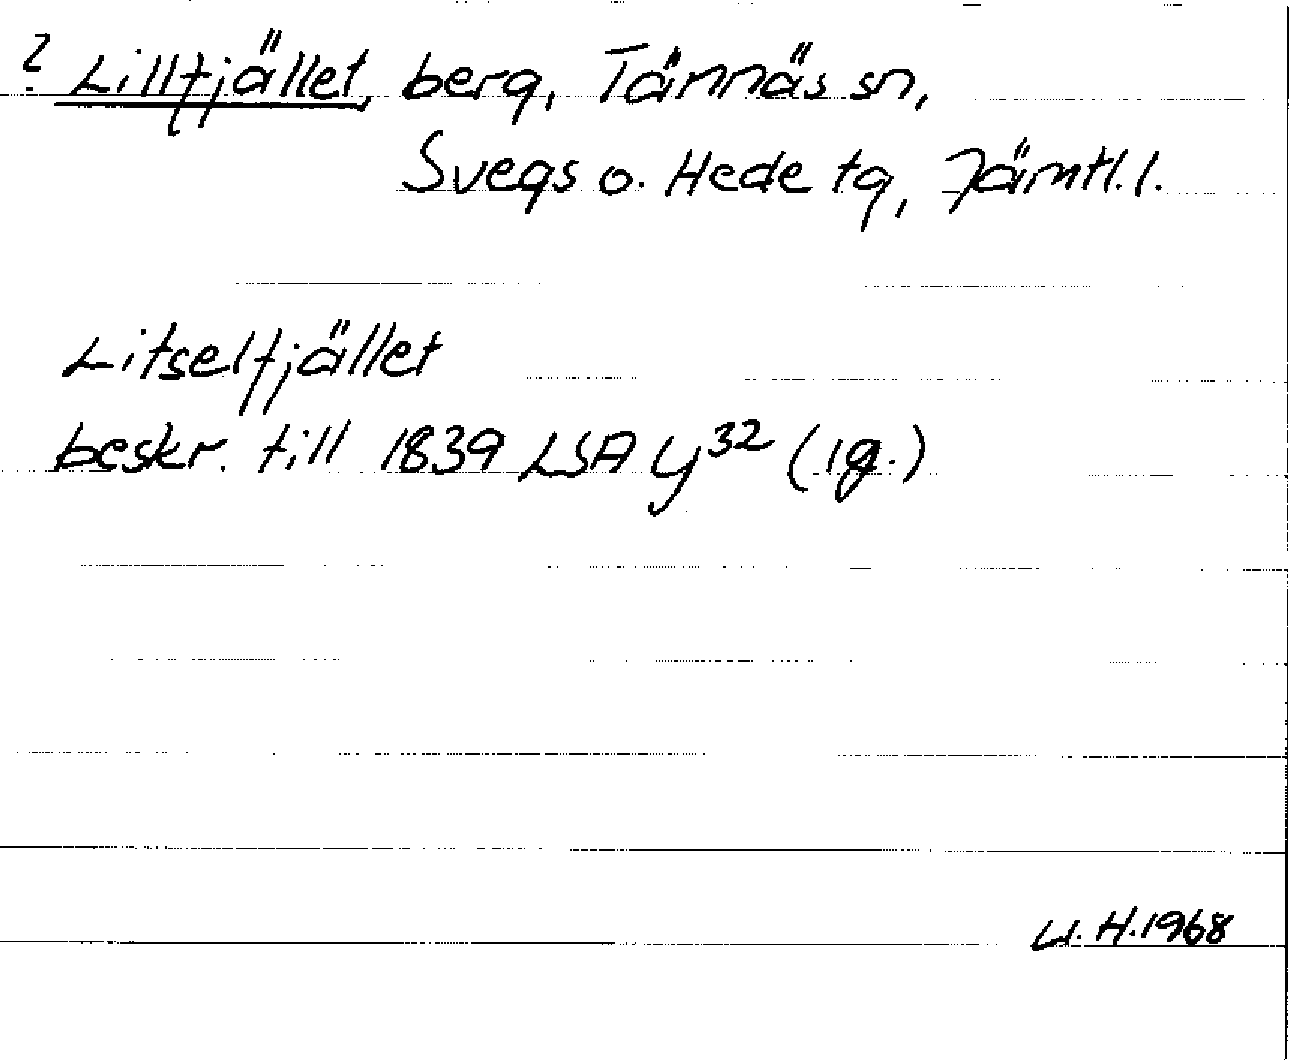 ? Lillfjället, berg, Tännäs sn,
Svegs o. Hede tg, Jämtl. l.
Litselfjället
beskr. till 1839 LSA y32 (ig.)
U. H. 1968